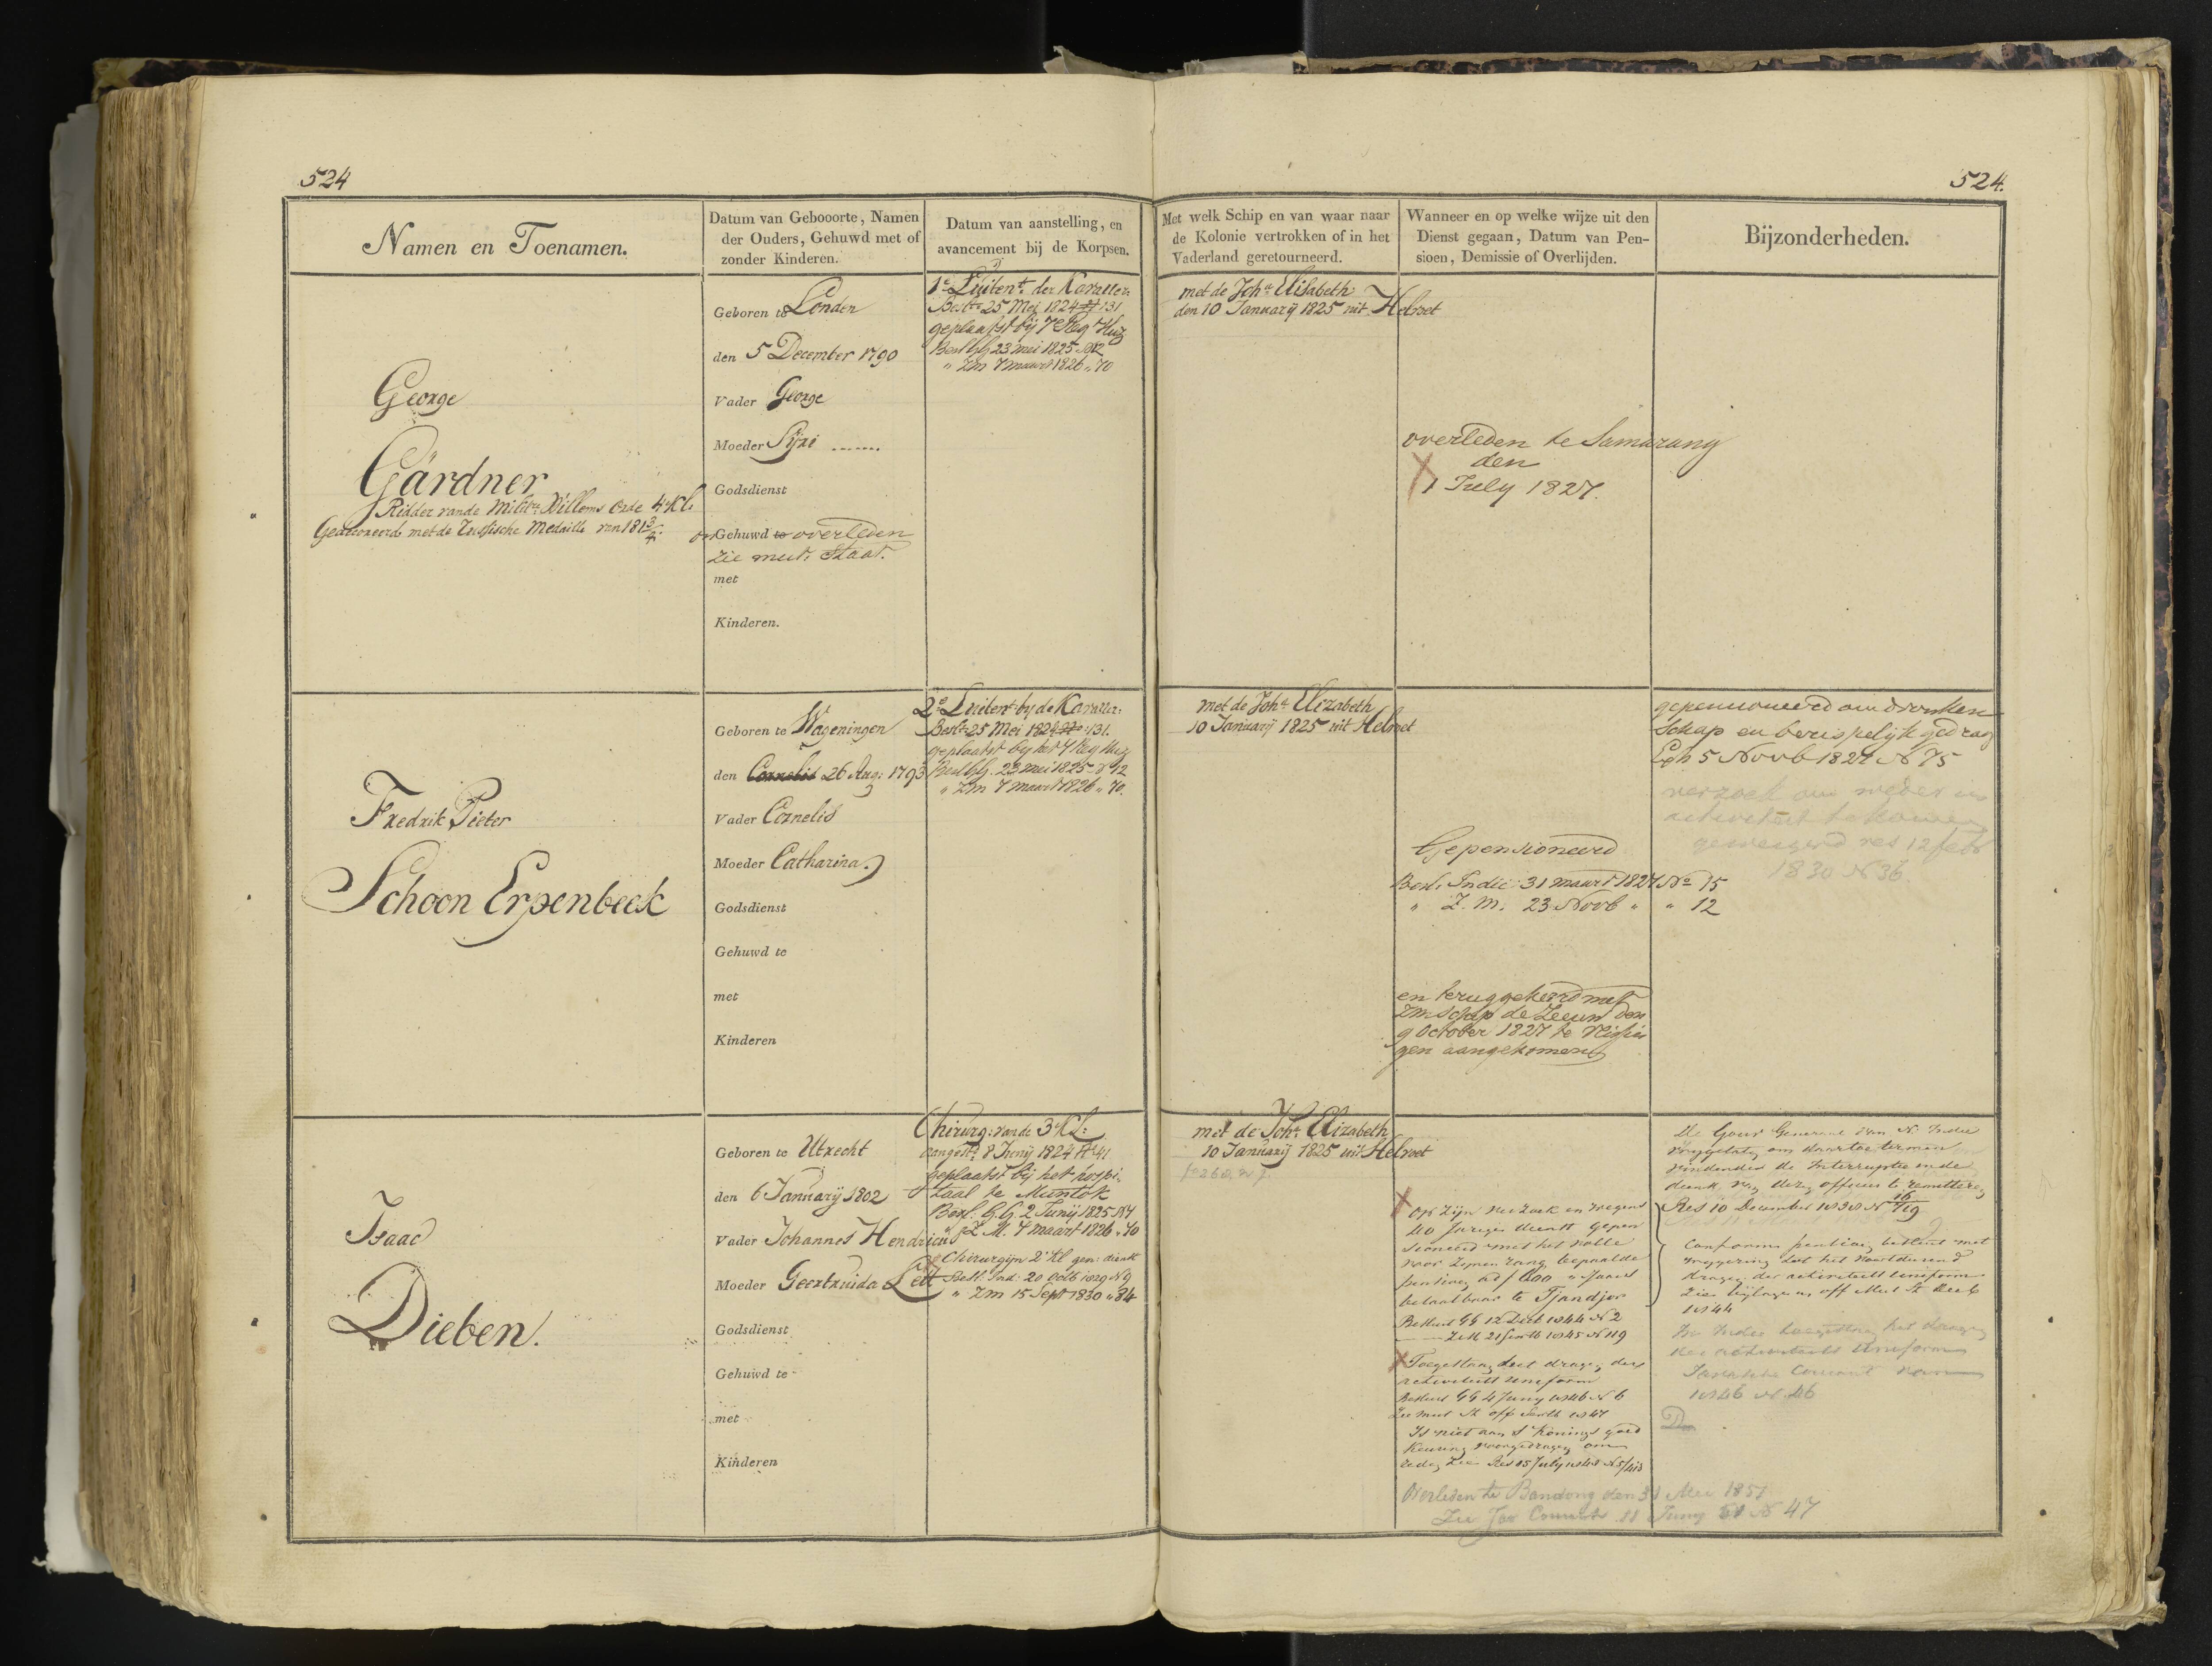 524
524.
Namen en Toenamen.
Datum van Gebooorte, Namen
der Ouders, Gehuwd met of
zonder Kinderen.
Datum van aanstelling, en
avancement bij de Korpsen.
Met welk Schip en van waar naar
de Kolonie vertrokken of in het
Vaderland geretourneerd.
Wanneer en op welke wijze uit den
Dienst gegaan, Datum van Pen-
sioen, Demissie of Overlijden.
Bijzonderheden.
George
Gardner
Ridder vande Milit: Willems Orde 4 Kl
met de Medaille van 181 3/4
Geboren te Londen
den 5 December 1790
Vader George
Moeder
Godsdienst
Gehuwd te overleden
zie mut: Staat.
met
Kinderen.
1e Luitent: der Kavaller:
Beslt 25 Mei 1824 131
geplaatst bij 7e Reg Huz
Besl GG 23 mei 1825 N 12
" ZM 7 maart 1826 " 70
met de Joha Elisabeth
den 10 Januarij 1825 uit Helvoet
overleden te Samarang
den
1 July 1827.
Fredrik Pieter
Schoon Erpenbeek
Geboren te Wageningen
den Cornelis 26 Aug: 1793
Vader Cornelis
Moeder Catharina
Godsdienst
Gehuwd te
met
Kinderen
2e Luitent by de Kavaller:
Beslt 25 Mei 1824 131.
geplaatst by het 7 Reg Huz
Besl GG. 23 mei 1825 N 12
" ZM 7 maart 1826 " 70.
met de Joha Elizabeth
10 Januarij 1825 uit Helvoet
Gepensioneerd
Besl. Indie 31 maart 1827 No 15
" Z. M. 23 Novb " " 12
en teruggekeerd met
ZM schip de Zeeuw den
9 October 1827 te Vlissin
gen aangekomen
gepensioneerd om dronken
schap en berispelijk gedrag
5 Novb 1827 N 75
verzoek om weder in
activiteit te komen
geweigerd res 12 feb
1830 N 36.
Isaac
Dieben.
Geboren te Utrecht
den 6 Januarij 1802
Vader Johannes Hendricus
Moeder Geertruida
Godsdienst
Gehuwd te
met
Kinderen
Chirurg: vande 3e Kl:
aangest: 8 Junij 1824 41
geplaatst bij het hospi-
taal te Muntok
Besl: G.G. 2 Junij 1825 N 4
" Z. M. 7 maart 1826 " 70
Chirurgijn 2e Kl gen: dienst
Besl. Ind: 20 Octb 1829 N 9
" ZM 15 Sept 1830 " 84
met de Joha: Elizabeth
10 Januarij 1825 uit Helvoet
Op zijn verzoek en wegens
jarigen dienst gepen
sioneerd met het volle
voor zynen rang bepaalde
pensioen
betaalbaar te Tjandjor
Besluit GG 12 Dec 1844 N 2
1845 N 119
Toegestaan het dragen der
activiteits uniform
Besluit GG 4 Juny 1846 N 6
Zie mut St off 1847
Is niet aan s Konings goed
keuring voorgedragen om
reden Zie Res
Overleden te Bandong den 31 Mei 1851
Zie Jav Courant 11 Juny 51 N 47
De Gouv Generaal van N. Indie
om daartoe termen
vindende de interruptie in de
dienst van dezen officier te remitteren
Res 10 December 1838 N 16/119
Conform pensioen besluit met
weggering tot het voortdurend
dragen der activiteits uniform
Zie bijlage off Mut St Decb
1844
In Indie toegestaan het dragen
der activiteits uniform
Javasche Courant van
1846 N 46